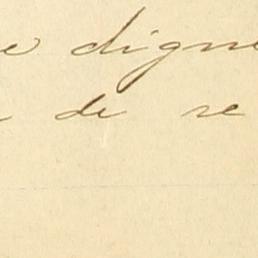 e digne
de re